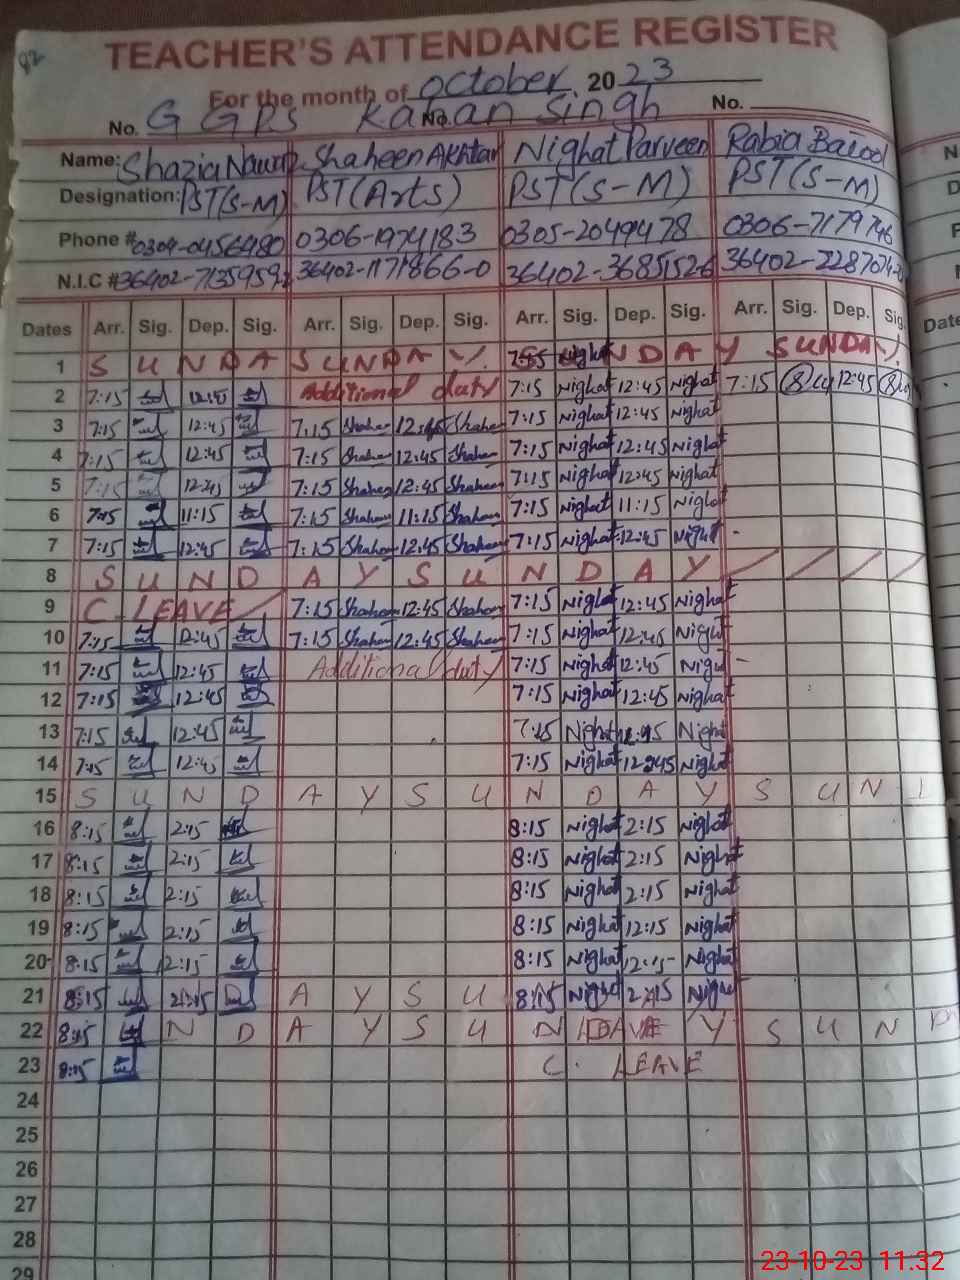 92
TEACHER'S ATTENDANCE REGISTER
For the month of October 2023
No. G GPS Karan Singh No. No.
Name: Shazia Nawaz Shaheen Akhtar Nighat Parveen Rabia Batool
Designation: PST(S-M) PST(Arts) PST(S-M) PST(S-M)
Phone # 0304-0456480 0306-1974183 0305-2049478 0306-7179746
N.I.C # 36402-7135959 36402-1171866-0 36402-3685152-6 36402-2287074
Dates Arr. Sig. Dep. Sig. Arr. Sig. Dep. Sig. Arr. Sig. Dep. Sig. Arr. Sig. Dep. Sig. Date
1 S U N D A SUNDAY 7:15 Nighat N D A Y SUNDAY
2 7:15 12:45 Additional duty 7:15 Nighat 12:45 Nighat 7:15 12:45
3 7:15 12:45 7:15 Shaheen 12:45 Shaheen 7:15 Nighat 12:45 Nighat
4 7:15 12:45 7:15 Shaheen 12:45 Shaheen 7:15 Nighat 12:45 Nighat
5 7:15 12:45 7:15 Shaheen 12:45 Shaheen 7:15 Nighat 12:45 Nighat
6 7:15 11:15 7:15 Shaheen 11:15 Shaheen 7:15 Nighat 11:15 Nighat
7 7:15 12:45 7:15 Shaheen 12:45 Shaheen 7:15 Nighat 12:45 Nighat
8 S U N D A Y S U N D A Y
9 C. LEAVE 7:15 Shaheen 12:45 Shaheen 7:15 Nighat 12:45 Nighat
10 7:15 12:45 7:15 Shaheen 12:45 Shaheen 7:15 Nighat 12:45 Nighat
11 7:15 12:45 Additional duty 7:15 Nighat 12:45 Nighat
12 7:15 12:45 7:15 Nighat 12:45 Nighat
13 7:15 12:45 7:15 Nighat 12:45 Nighat
14 7:15 12:45 7:15 Nighat 12:45 Nighat
15 S U N D A Y S U N D A Y S U N
16 8:15 2:15 8:15 Nighat 2:15 Nighat
17 8:15 2:15 8:15 Nighat 2:15 Nighat
18 8:15 2:15 8:15 Nighat 2:15 Nighat
19 8:15 2:15 8:15 Nighat 12:15 Nighat
20 8:15 12:15 8:15 Nighat 12:15 Nighat
21 8:15 2:15 D A Y S U 8:15 Nighat 2:15 Nighat
22 8:15 N D A Y S U N LEAVE Y S U N
23 8:15 C. LEAVE
24
25
26
27
28
29
23-10-23 11.32